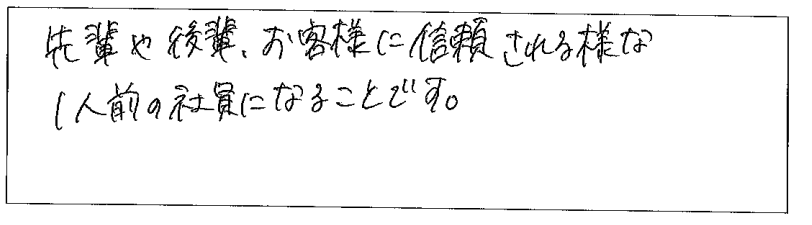 先輩や後輩、お客様に信頼される様な
1人前の社員になることです。